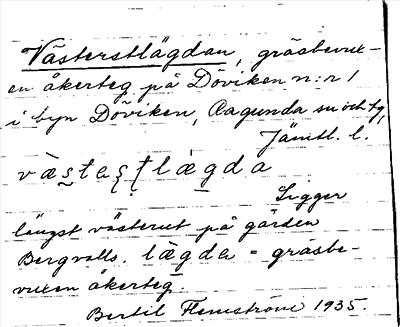 Västerstlägdan, gräsbevux-
en åkerteg på Döviken n:r 1
i byn Döviken, Ragunda sn och tg,
Jämtl. l.
vàs̱teṣṭlàgda
Ligger
längst västerut på gården
Bergvalls. lägda = gräsbe-
vuxen åkerteg.
Bertil Flemström 1935.